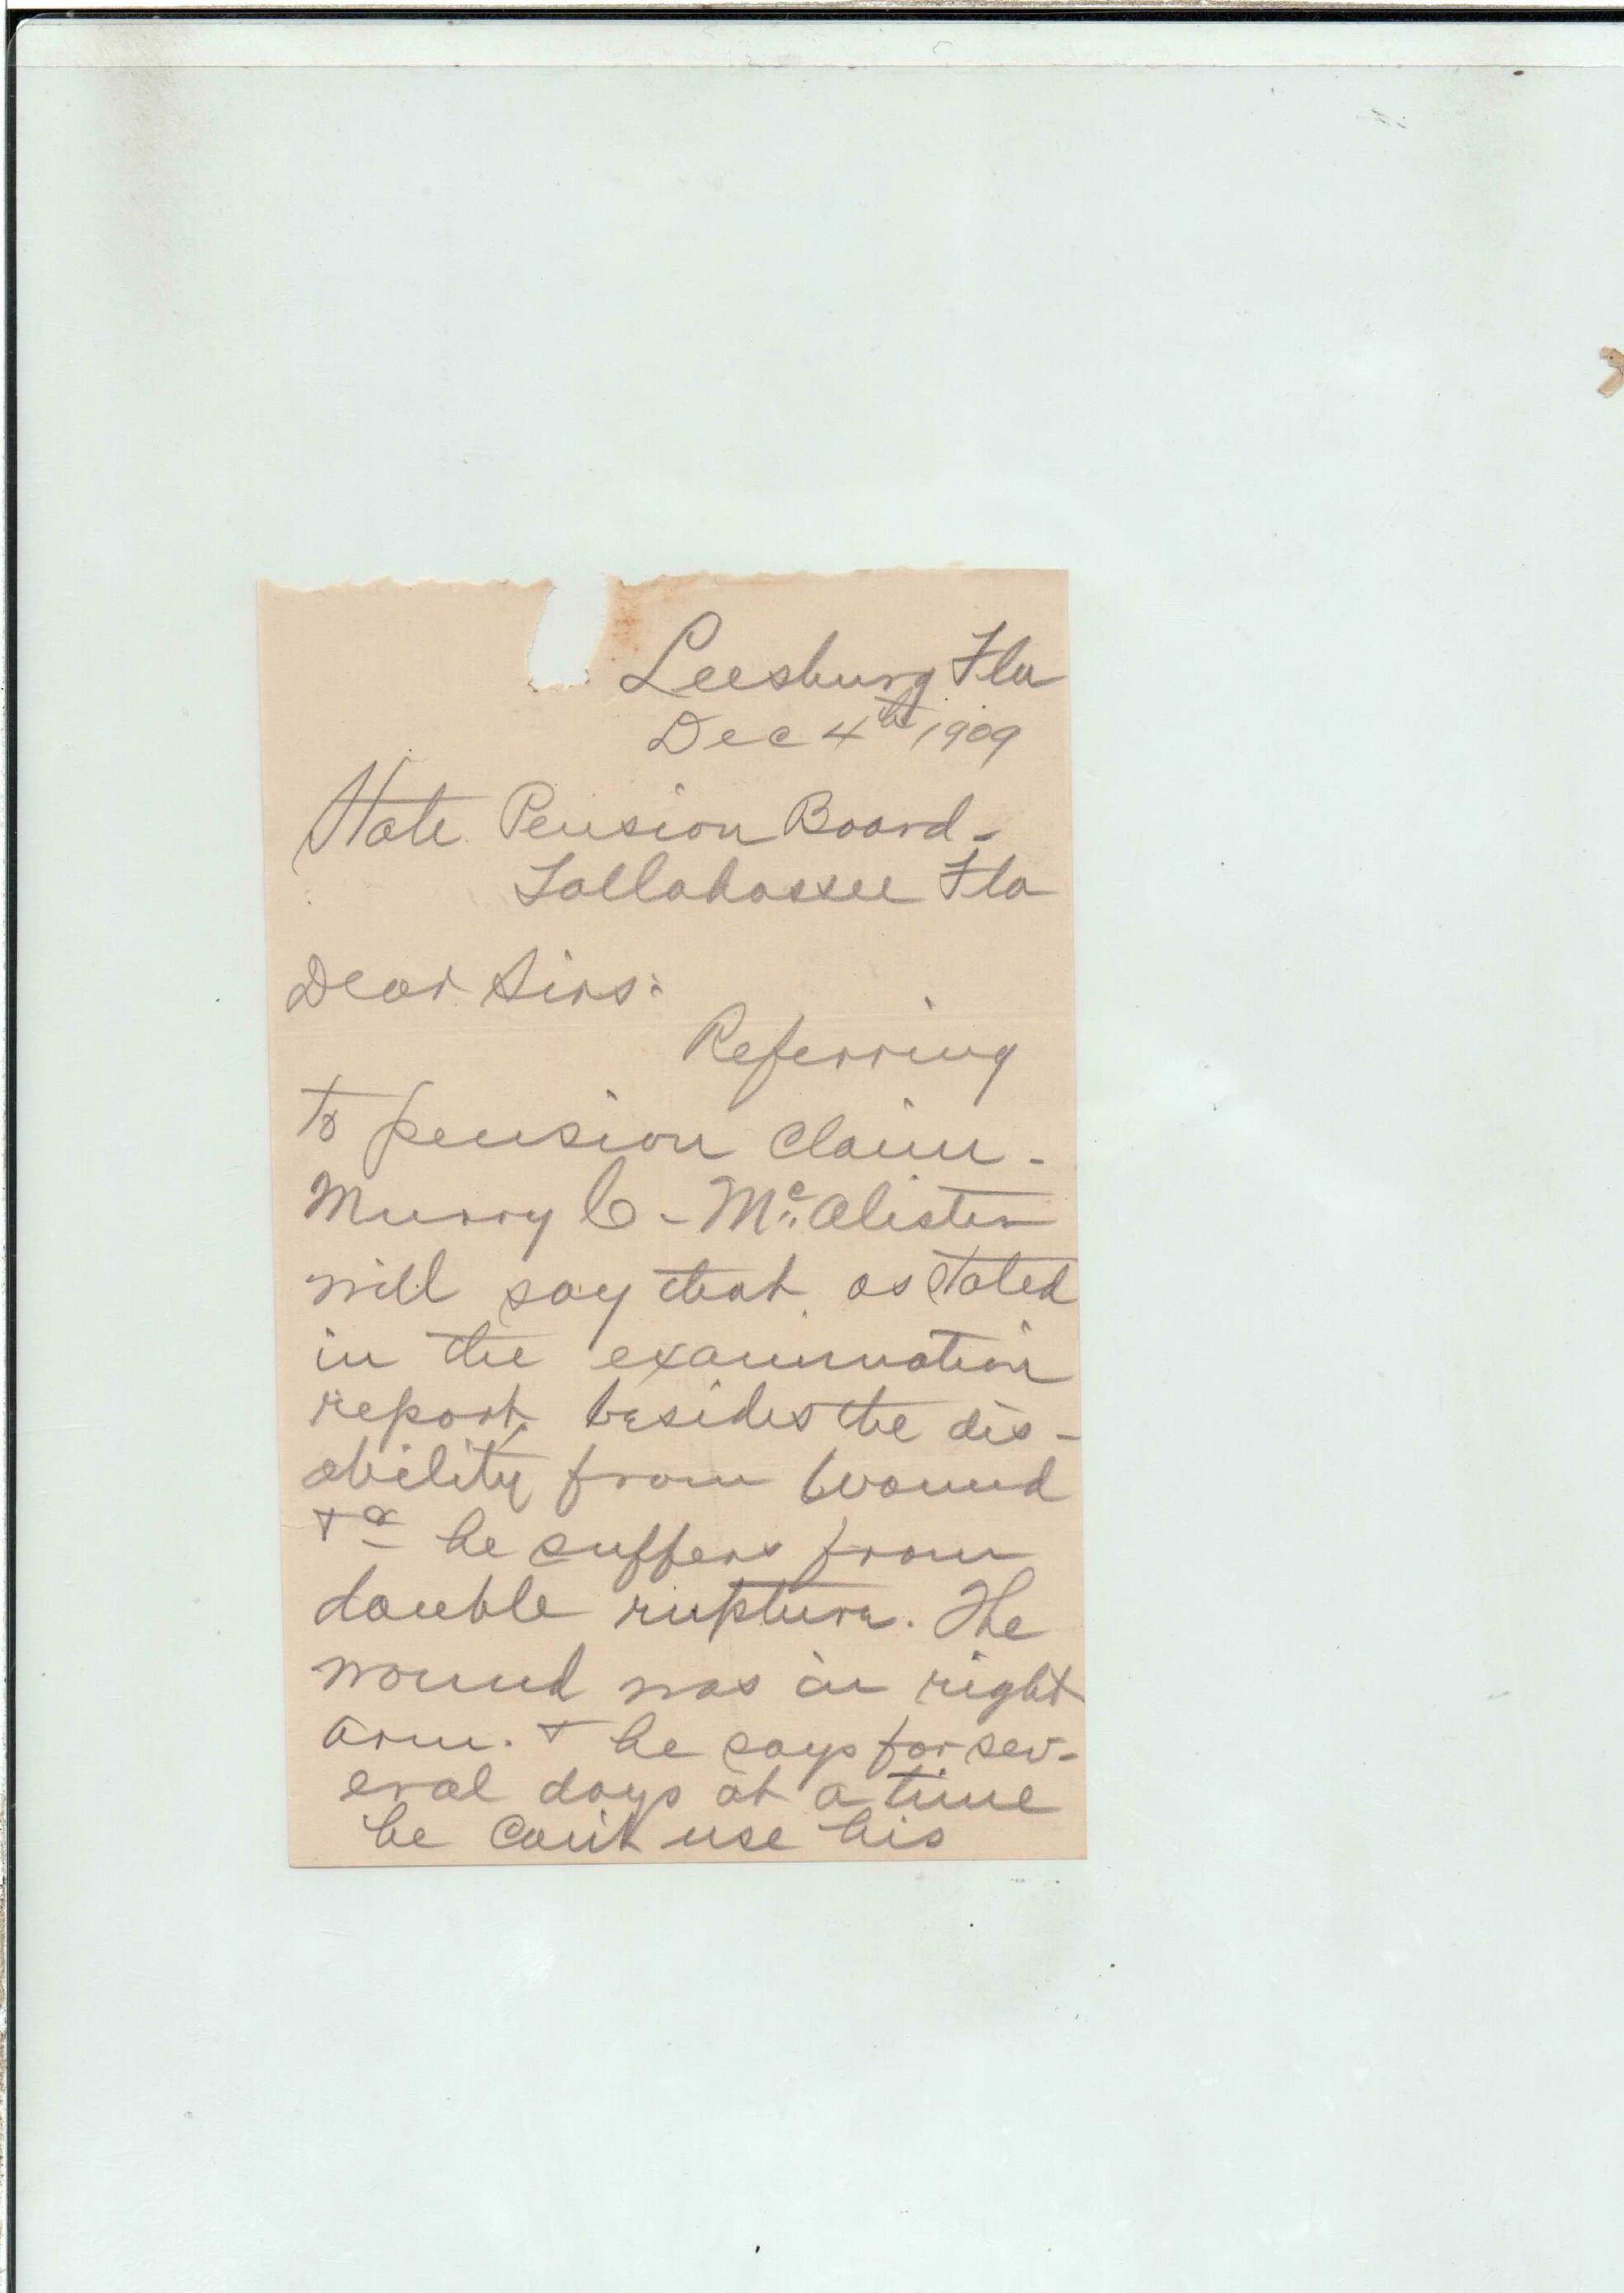 Leesburg Fla
Dec 4th 1909
State Pension Board -
Tallahassee Fla
Dear Sirs:
Referring
to pension claim -
Murry C - Mc Alister
will say that as stated
in the examination
report besides the dis-
ability from wound
he suffers from
double rupture. The
wound was in right
arm. + he says for sev-
eral days at a time
he can't use his